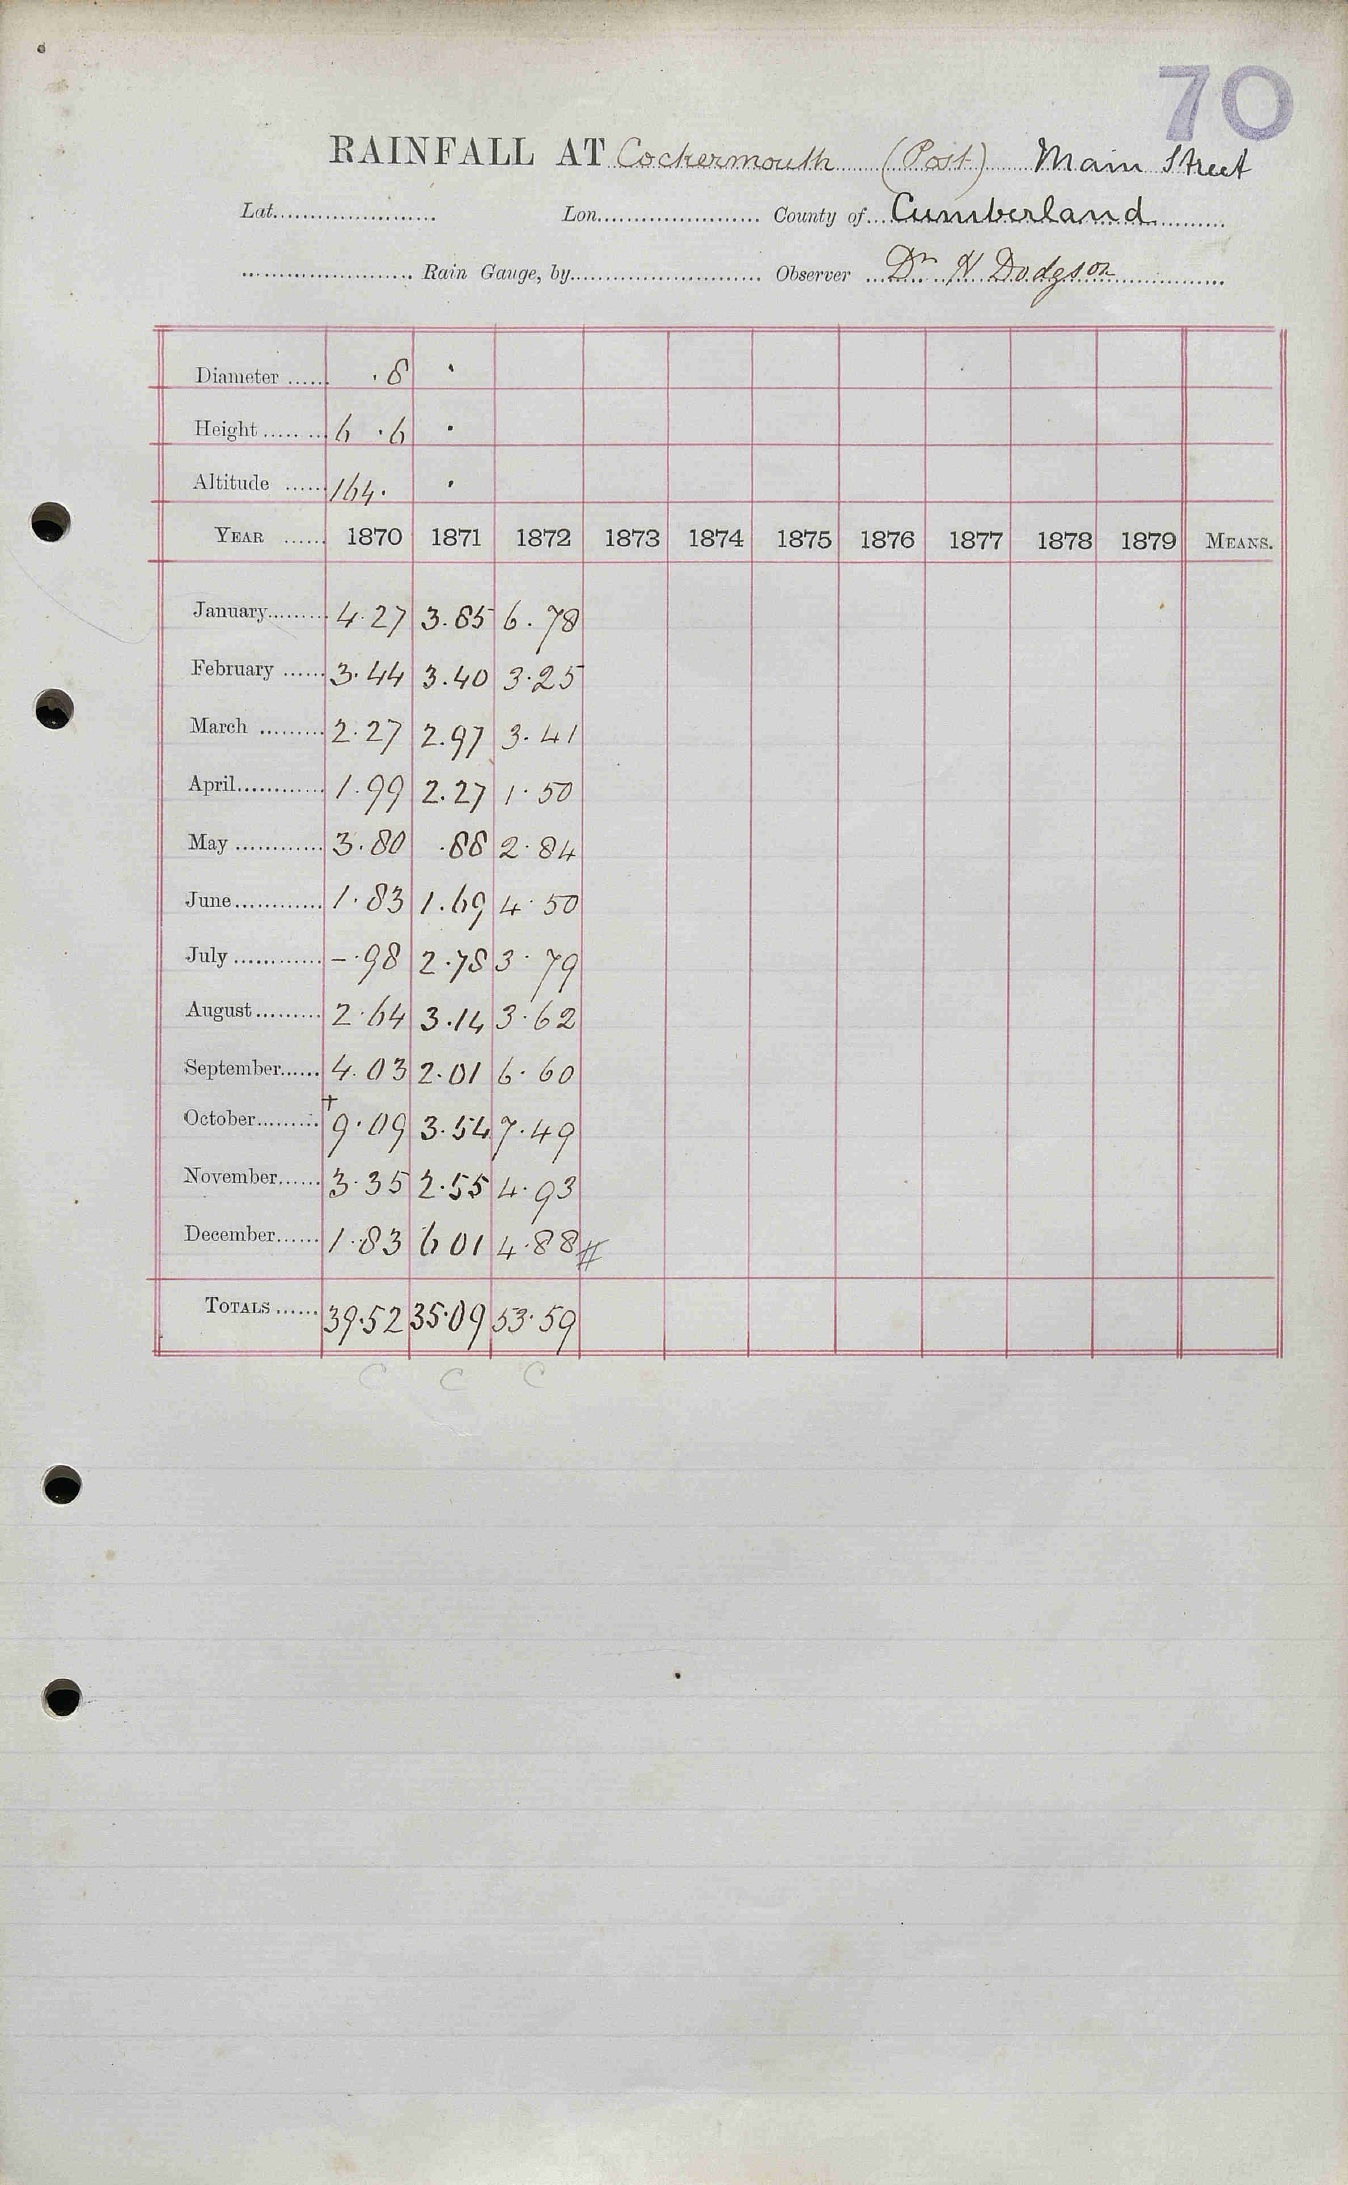 70
RAINFALL AT Cockermouth (Post) Main Street
Lat. Lon. County of Cumberland
Rain Gauge, by Observer Dr H Dodgson
Diameter .8 .
Height 6 .6 .
Altitude 164. .
YEAR 1870 1871 1872 1873 1874 1875 1876 1877 1878 1879 MEANS.
January 4.27 3.85 6.78
February 3.44 3.40 3.25
March 2.27 2.97 3.41
April 1.99 2.27 1.50
May 3.80 .88 2.84
June 1.83 1.69 4.50
July -.98 2.78 3.79
August 2.64 3.14 3.62
September 4.03 2.01 6.60
October +9.09 3.54 7.49
November 3.35 2.55 4.93
December 1.83 6 01 4.88 #
TOTALS 39.52 35.09 53.59
C C C